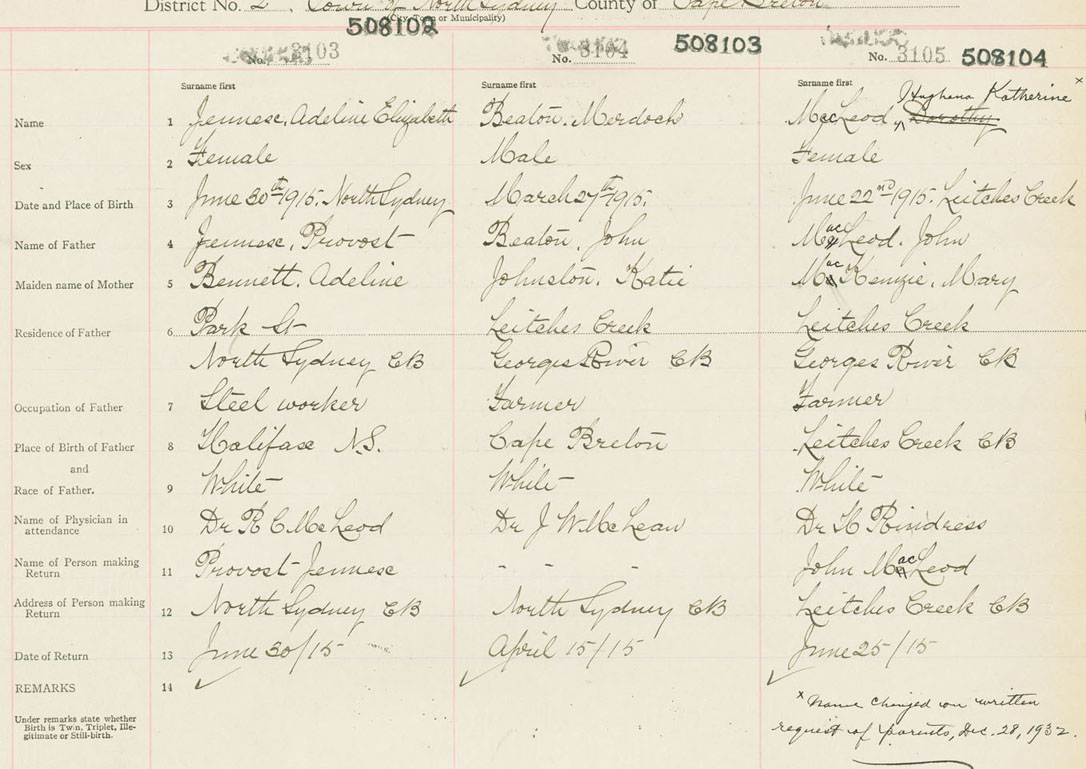 District No. 2, Town of North Sydney County of Cape Breton
(City, Town or Municipality)
508102 508103 508104
No. 3103 No. 3104 No. 3105
Surname first Surname first Surname first
Hughena Katherine x
Name 1 Jennese, Adeline Elizabeth Beaton, Murdoch MacLeod, Dorothy
Sex 2 Female Male Female
Date and Place of Birth 3 June 30th 1915. North Sydney March 27th 1915. June 22nd 1915. Leitches Creek
Name of Father 4 Jennese, Provost Beaton, John MacLeod. John
Maiden name of Mother 5 Bennett. Adeline Johnston. Katie MacKenzie, Mary
Residence of Father 6 Park St Leitches Creek Leitches Creek
North Sydney CB Georges River CB Georges River CB
Occupation of Father 7 Steel worker Farmer Farmer
Place of Birth of Father 8 Halifax N.S. Cape Breton Leitches Creek CB
and
Race of Father. 9 White White White
Name of Physician in attendance 10 Dr R C McLeod Dr J W McLean Dr H Rindress
Name of Person making Return 11 Provost Jennese - - - John MacLeod
Address of Person making Return 12 North Sydney CB North Sydney CB Leitches Creek CB
Date of Return 13 June 30/15 April 15/15 June 25/15
REMARKS 14
x Name changed on written
Under remarks state whether
Birth is Twin, Triplet, Ille-
gitimate or Still-birth.
request of parents, Dec. 28, 1932.